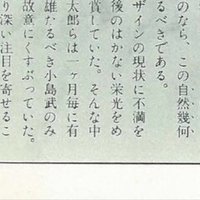 のなら、この自然幾何
るべきである。
ザインの現状に不満を
後のはかない栄光をめ
賞していた。そんな中
太郎らは一ヶ月毎に有
雄たるべき小島武のみ
故意にくすぶっていた。
り深い注目を寄せるこ